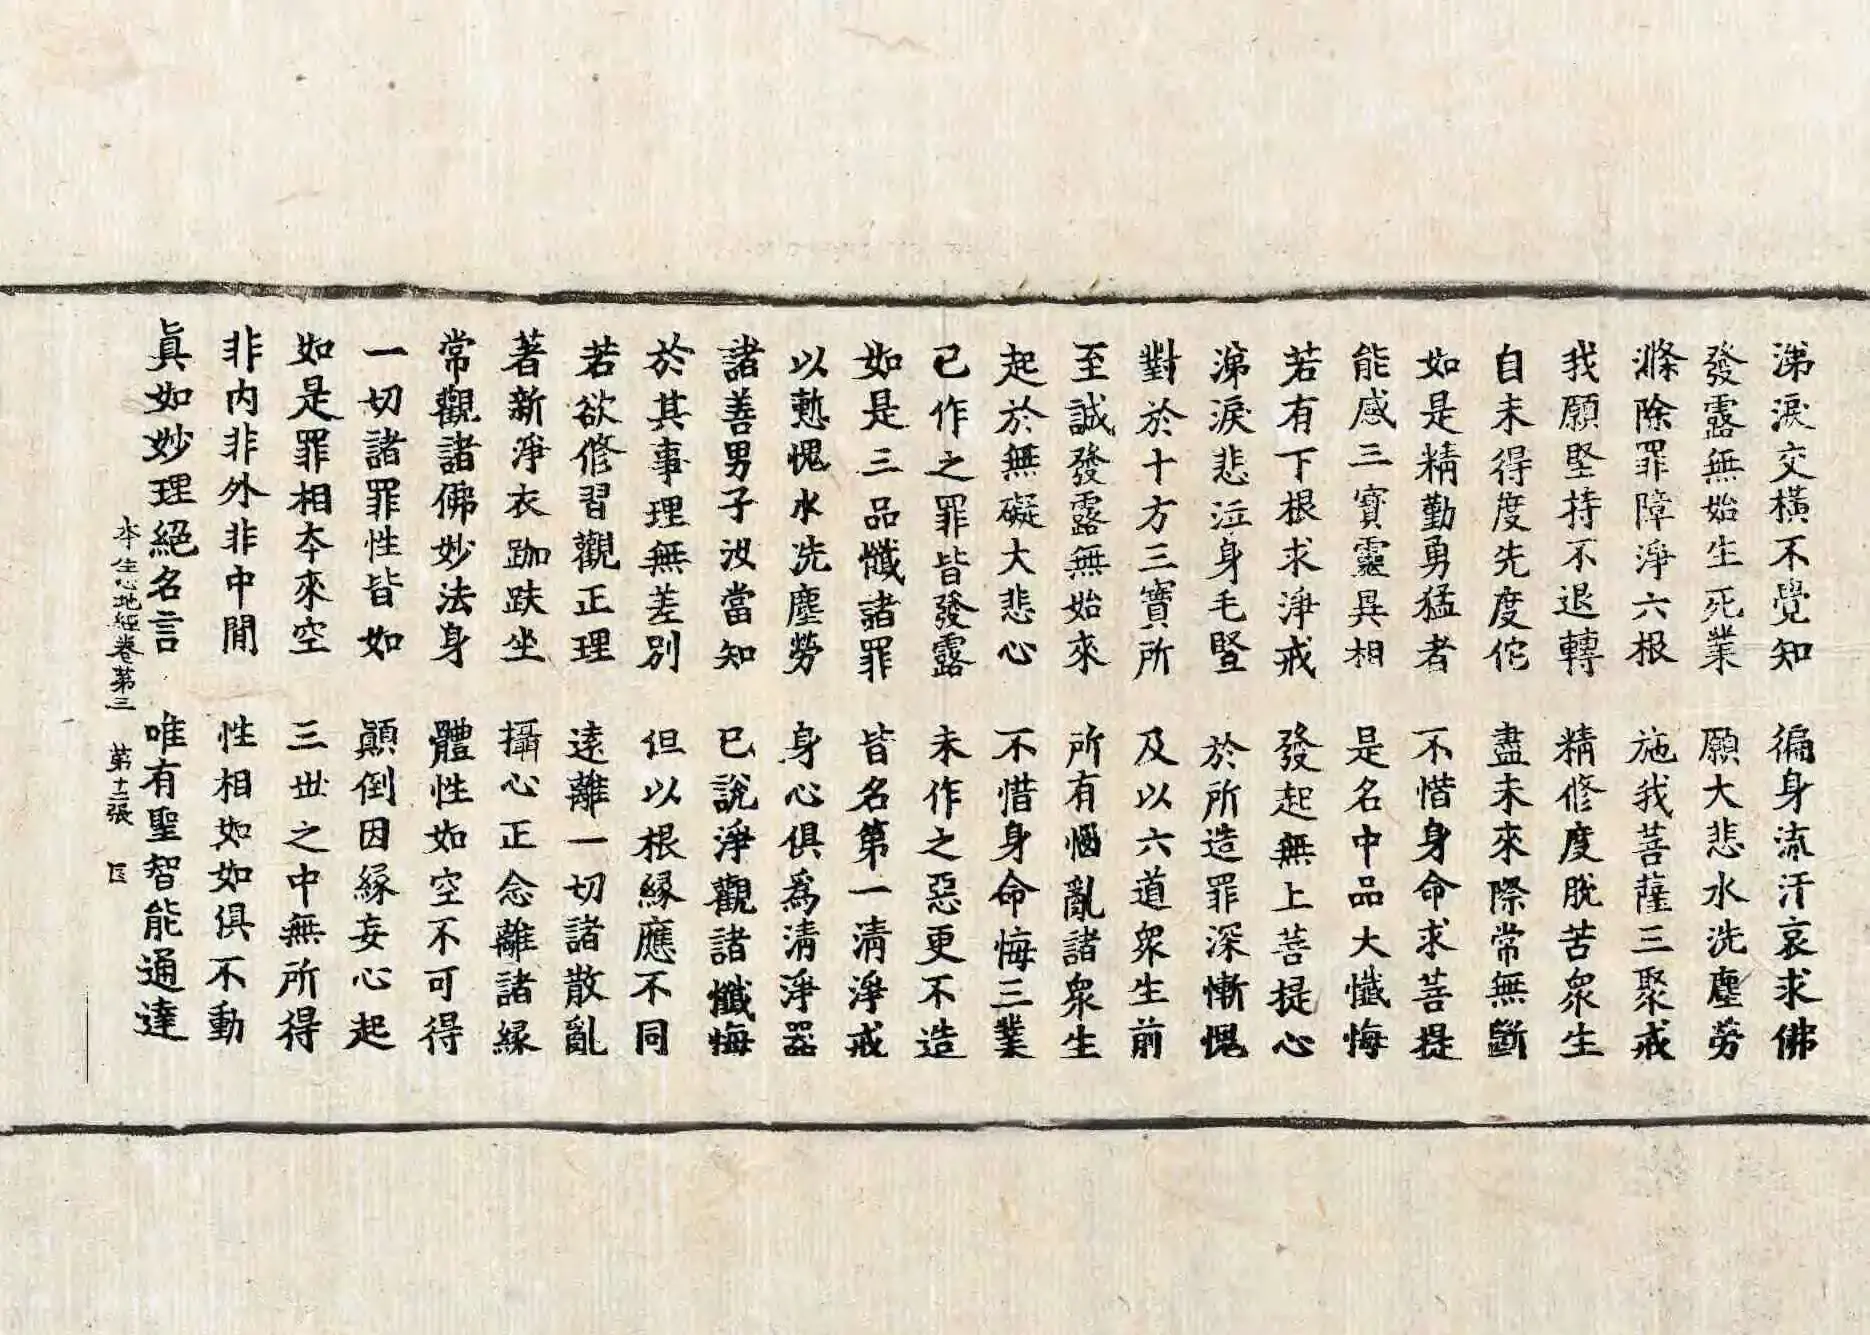 涕淚交橫不覺知　徧身流汗哀求佛
發露無始生死業　願大悲水洗塵勞
滌除罪障淨六根　施我菩薩三聚戒
我願堅持不退轉　精修度脫苦衆生
自未得度先度佗　盡未來際常無斷
如是精勤勇猛者　不惜身命求菩提
能感三寶靈異相　是名中品大懺悔
若有下根求淨戒　發起無上菩提心
涕淚悲泣身毛豎　於所造罪深慚愧
對於十方三寶所　及以六道衆生前
至誠發露無始來　所有惱亂諸衆生
起於無礙大悲心　不惜身命悔三業
已作之罪皆發露　未作之惡更不造
如是三品懺諸罪　皆名第一淸淨戒
以慙愧水洗塵勞　身心俱爲淸淨器
諸善男子汝當知　已說淨觀諸懺悔
於其事理無差別　但以根緣應不同
若欲修習觀正理　遠離一切諸散亂
著新淨衣跏趺坐　攝心正念離諸緣
常觀諸佛妙法身　體性如空不可得
一切諸罪性皆如　顚倒因緣妄心起
如是罪相夲來空　三世之中無所得
非內非外非中閒　性相如如俱不動
眞如妙理絕名言　唯有聖智能通達
本生心地經卷第三　第十二張　匡